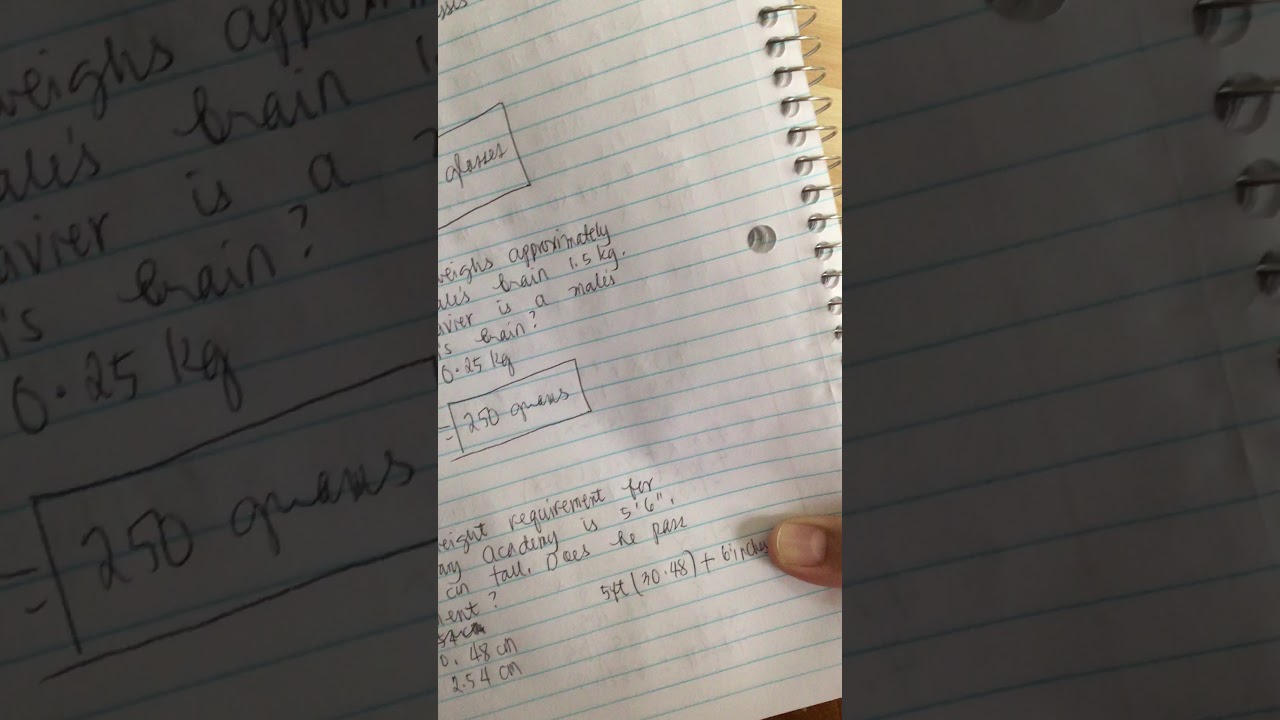 glasses
weighs approximately
ale's brain 1.5 kg.
avier is a male's
's brain?
0.25 kg
= 250 grams
eight requirement for
Academy is 5'6".
cm tall. Does he pass
ment?
5ft (30.48) + 6 inches
0.48 cm
2.54 cm